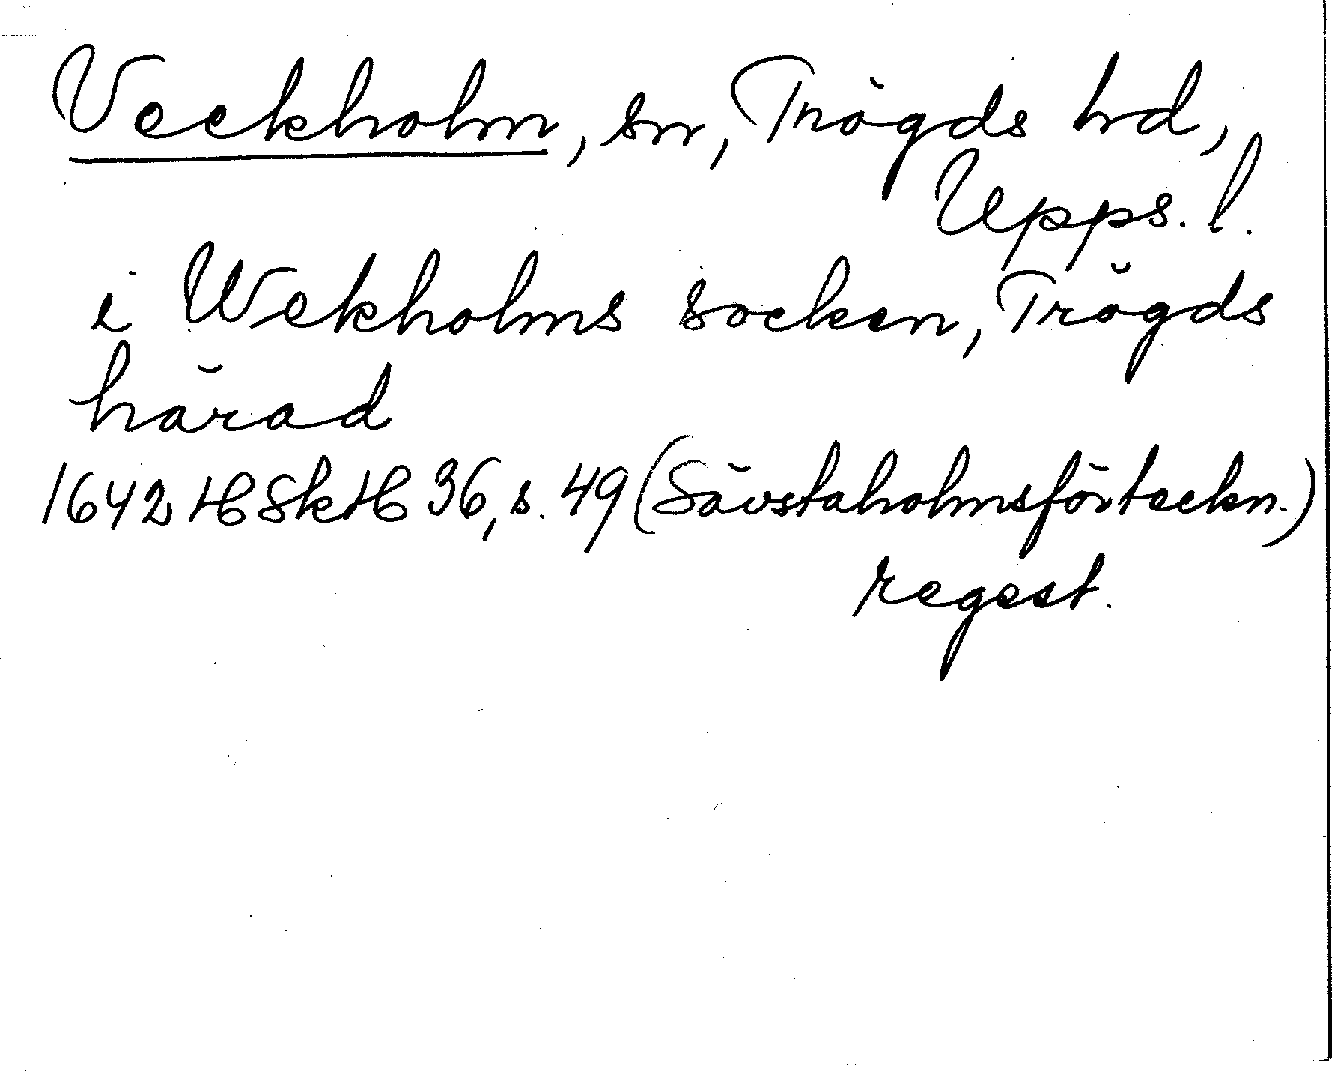 Veckholm, sn, Trögds hd,
Upps. l.
i Wekholms socken, Trögds
härad
1642 HSkH 36, s. 49 (Sävstaholmsförteckn.)
regest.